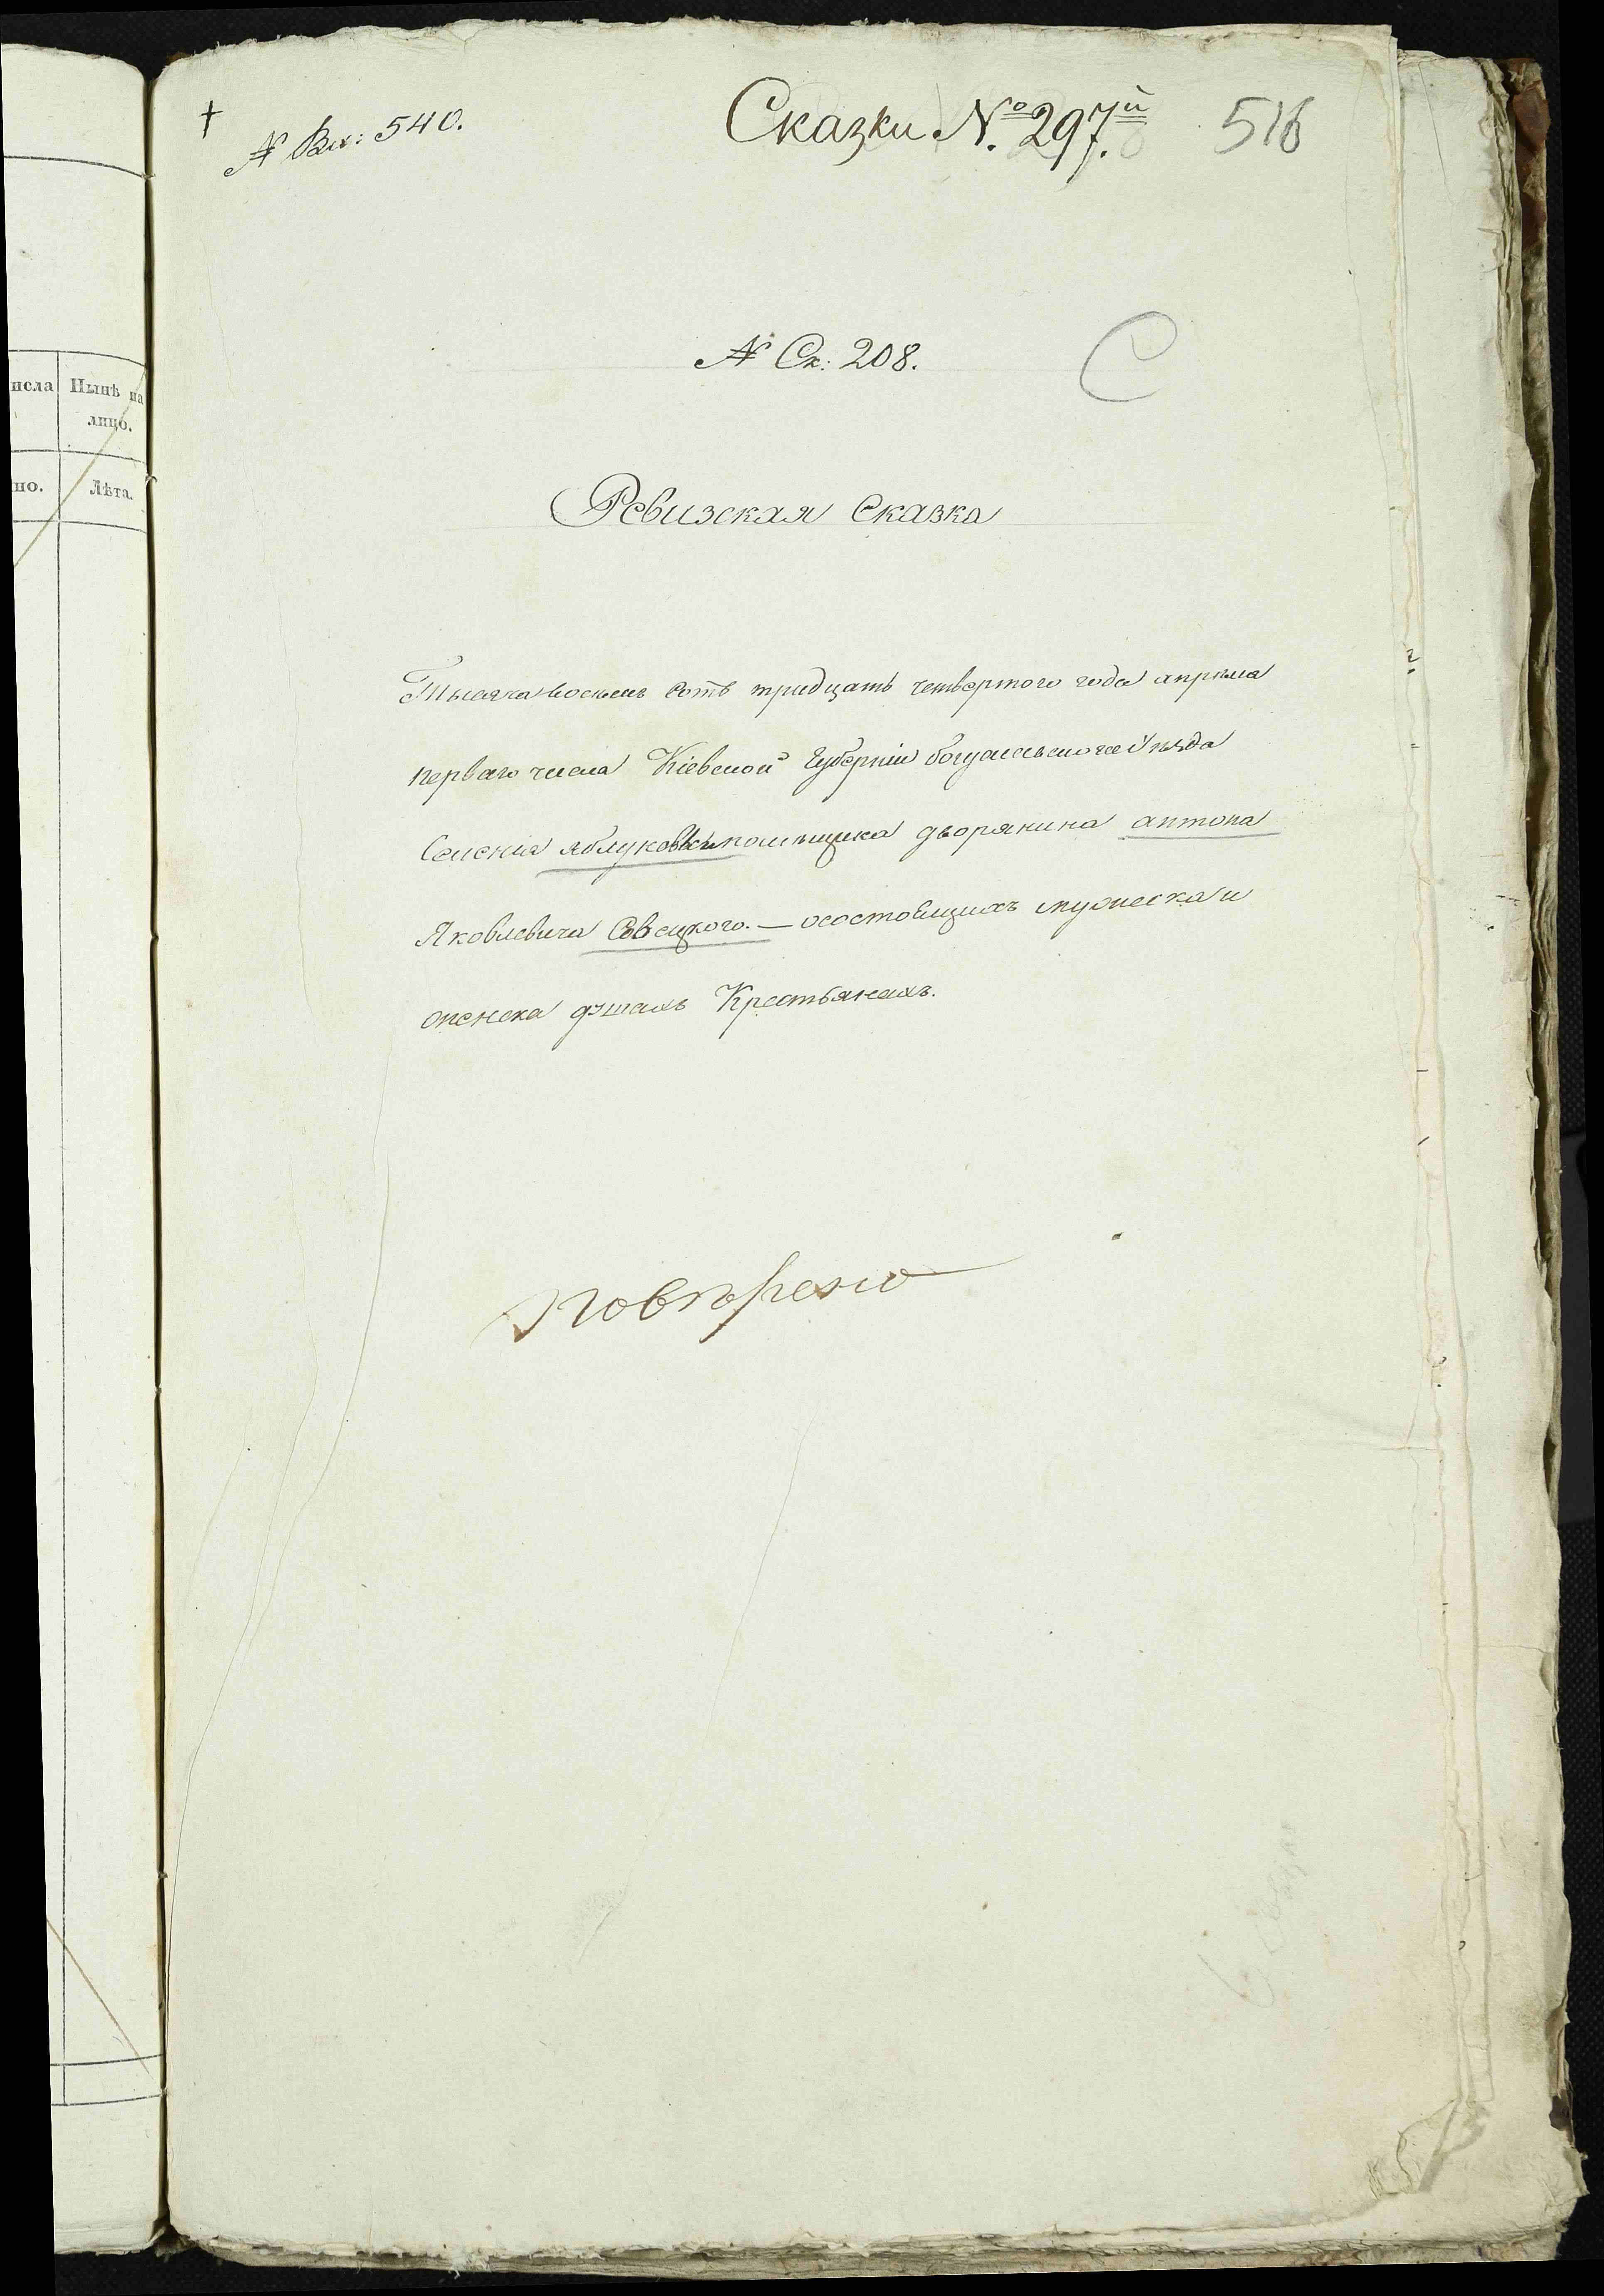 № Вх: 540.
Сказки №. 297.й
516
№ Ск: 208.
С
Ревизская Сказка
Тысяча восемь сотъ тридцать четвертого года апрѣля
перваго числа Кіевской Губерніи богуславского уѣзда
Селенія яблуковки помѣщика дворянина антона
Яковлевича Савецкого. — осостоящихъ мужеска и
женска душахъ Крестьянахъ.
повѣрено
исла
Нынѣ на
лицо.
но.
Лѣта.